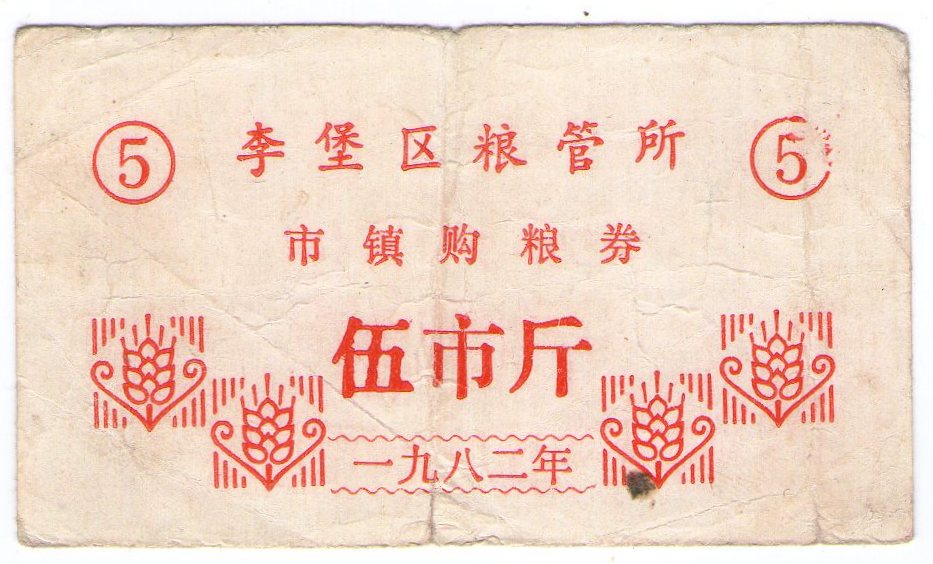 5 李堡区粮管所 5
市镇购粮券
伍市斤
一九八二年